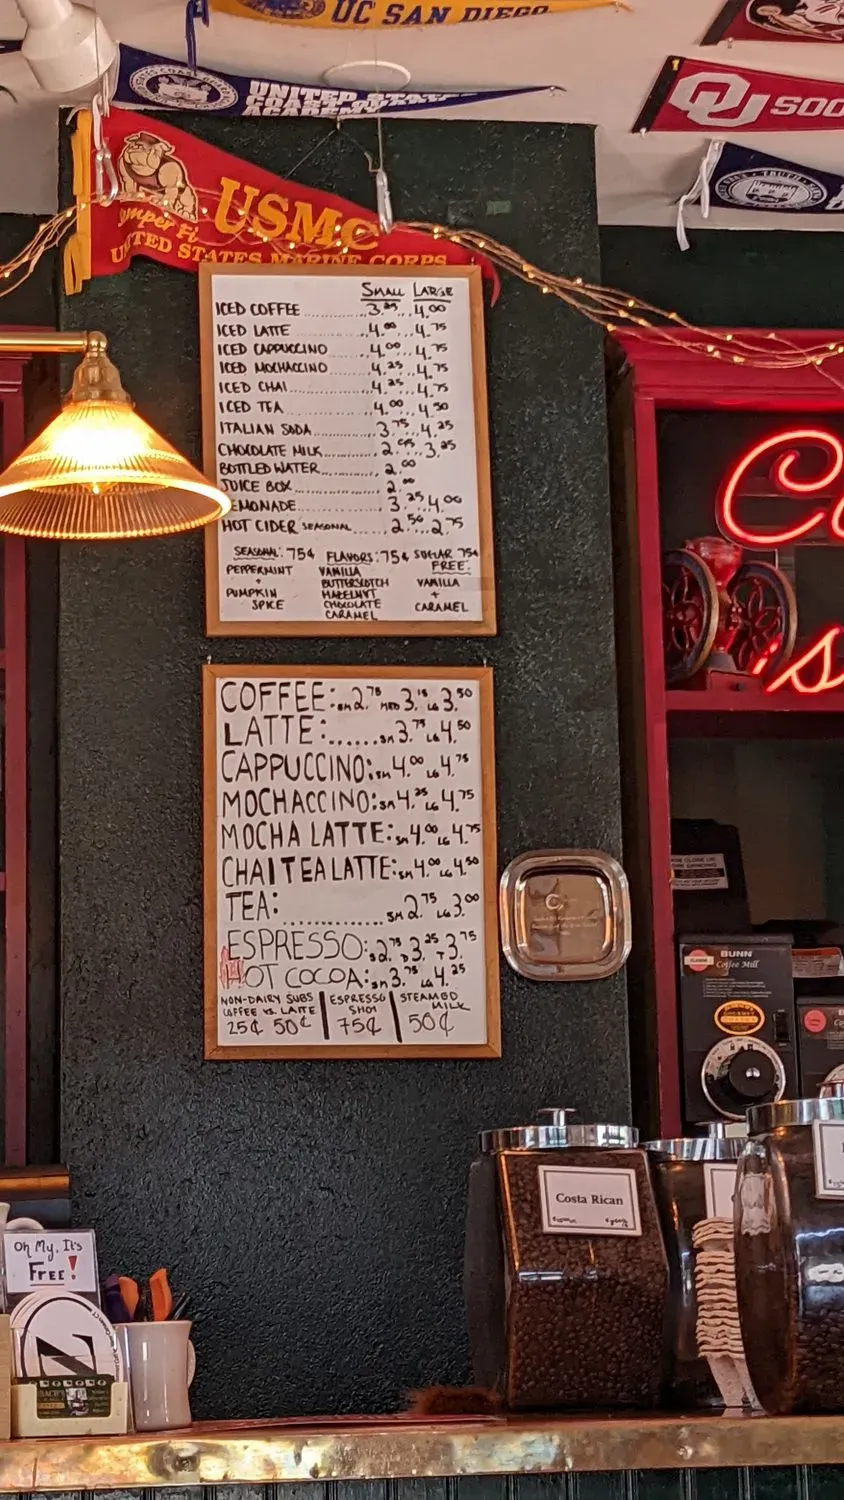 UC SAN DIEGO
UNITED STATES
COAST GUARD
ACADEMY
OU SOO
TRUTH
Semper Fi
USMC
UNITED STATES MARINE CORPS
SMALL LARGE
ICED COFFEE 3.25 4.00
ICED LATTE 4.00 4.75
ICED CAPPUCCINO 4.00 4.75
ICED MOCHACCINO 4.25 4.75
ICED CHAI 4.25 4.75
ICED TEA 4.00 4.50
ITALIAN SODA 3.75 4.25
CHOCOLATE MILK 2.95 3.25
BOTTLED WATER 2.00
JUICE BOX 2.00
LEMONADE 3.25 4.00
HOT CIDER SEASONAL 2.50 2.75
SEASONAL: 75¢ FLAVORS: 75¢ SUGAR 75¢
FREE:
PEPPERMINT VANILLA VANILLA
+ BUTTERSCOTCH +
PUMPKIN HAZELNUT CARAMEL
SPICE CHOCOLATE
CARAMEL
COFFEE: SM 2.75 MED 3.15 LG 3.50
LATTE:...... SM 3.75 LG 4.50
CAPPUCCINO: SM 4.00 LG 4.75
MOCHACCINO: SM 4.25 LG 4.75
MOCHA LATTE: SM 4.00 LG 4.75
CHAI TEA LATTE: SM 4.00 LG 4.50
TEA: SM 2.75 LG 3.00
ESPRESSO: S 2.75 D 3.25 T 3.75
HOT COCOA: SM 3.75 LG 4.25
NON-DAIRY SUBS | ESPRESSO | STEAMED
COFFEE VS. LATTE | SHOT | MILK
25¢ 50¢ | 75¢ | 50¢
BUNN
Coffee Mill
Costa Rican
Oh My, It's
FREE!